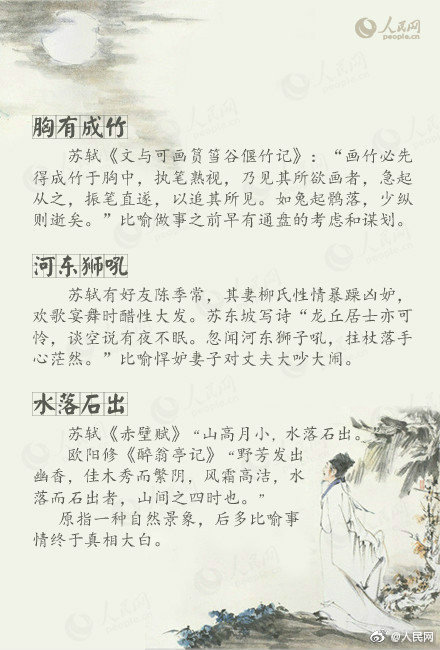 人民网
people.cn
胸有成竹
苏轼《文与可画筼筜谷偃竹记》:“画竹必先
得成竹于胸中,执笔熟视,乃见其所欲画者,急起
从之,振笔直遂,以追其所见。如兔起鹘落,少纵
则逝矣。”比喻做事之前早有通盘的考虑和谋划。
河东狮吼
苏轼有好友陈季常,其妻柳氏性情暴躁凶妒,
欢歌宴舞时醋性大发。苏东坡写诗“龙丘居士亦可
怜,谈空说有夜不眠。忽闻河东狮子吼,拄杖落手
心茫然。”比喻悍妒妻子对丈夫大吵大闹。
水落石出
苏轼《赤壁赋》“山高月小,水落石出。
欧阳修《醉翁亭记》“野芳发出
幽香,佳木秀而繁阴,风霜高洁,水
落而石出者,山间之四时也。”
原指一种自然景象,后多比喻事
情终于真相大白。
@人民网